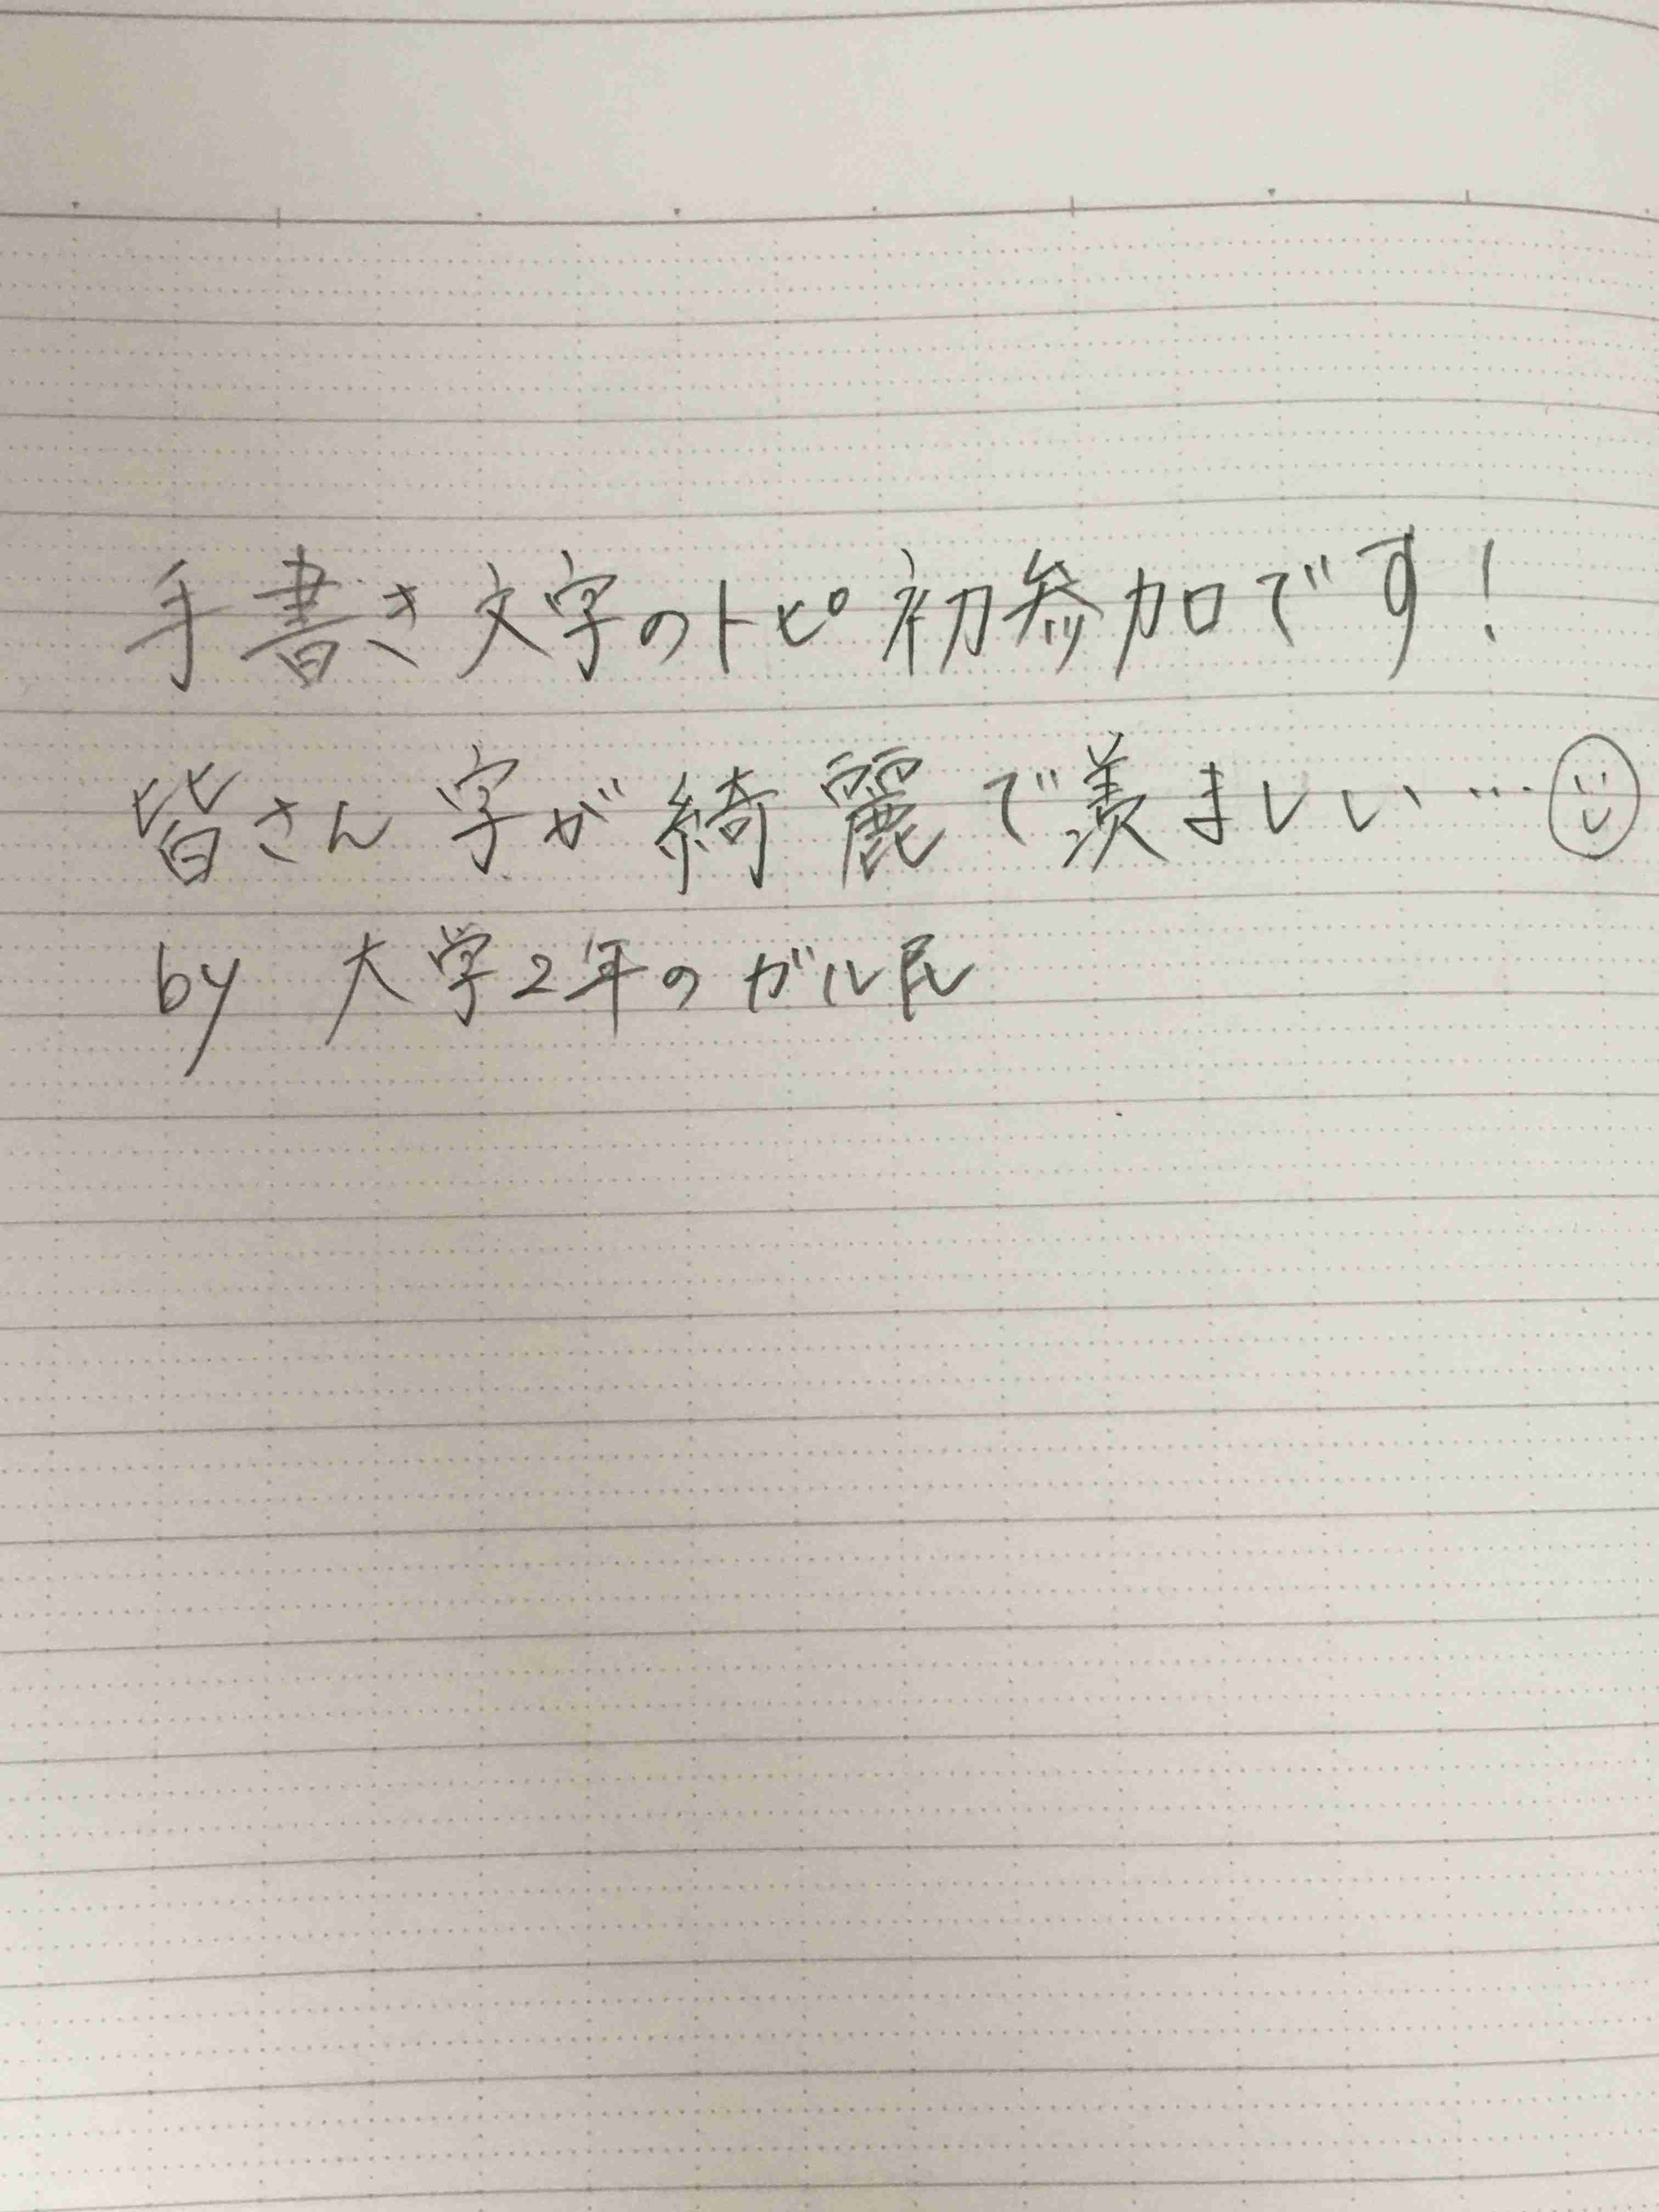 手書き文字のトピ初参加です!
皆さん字が綺麗で羨ましい…☺
by 大学2年のガル民